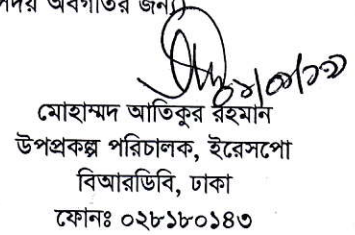 অবগতির জন্য)
মোহাম্মদ আতিকুর রহমান
উপপ্রকল্প পরিচালক, ইরেসপো
বিআরডিবি, ঢাকা
ফোনঃ ০২৮১৮০১৪৩